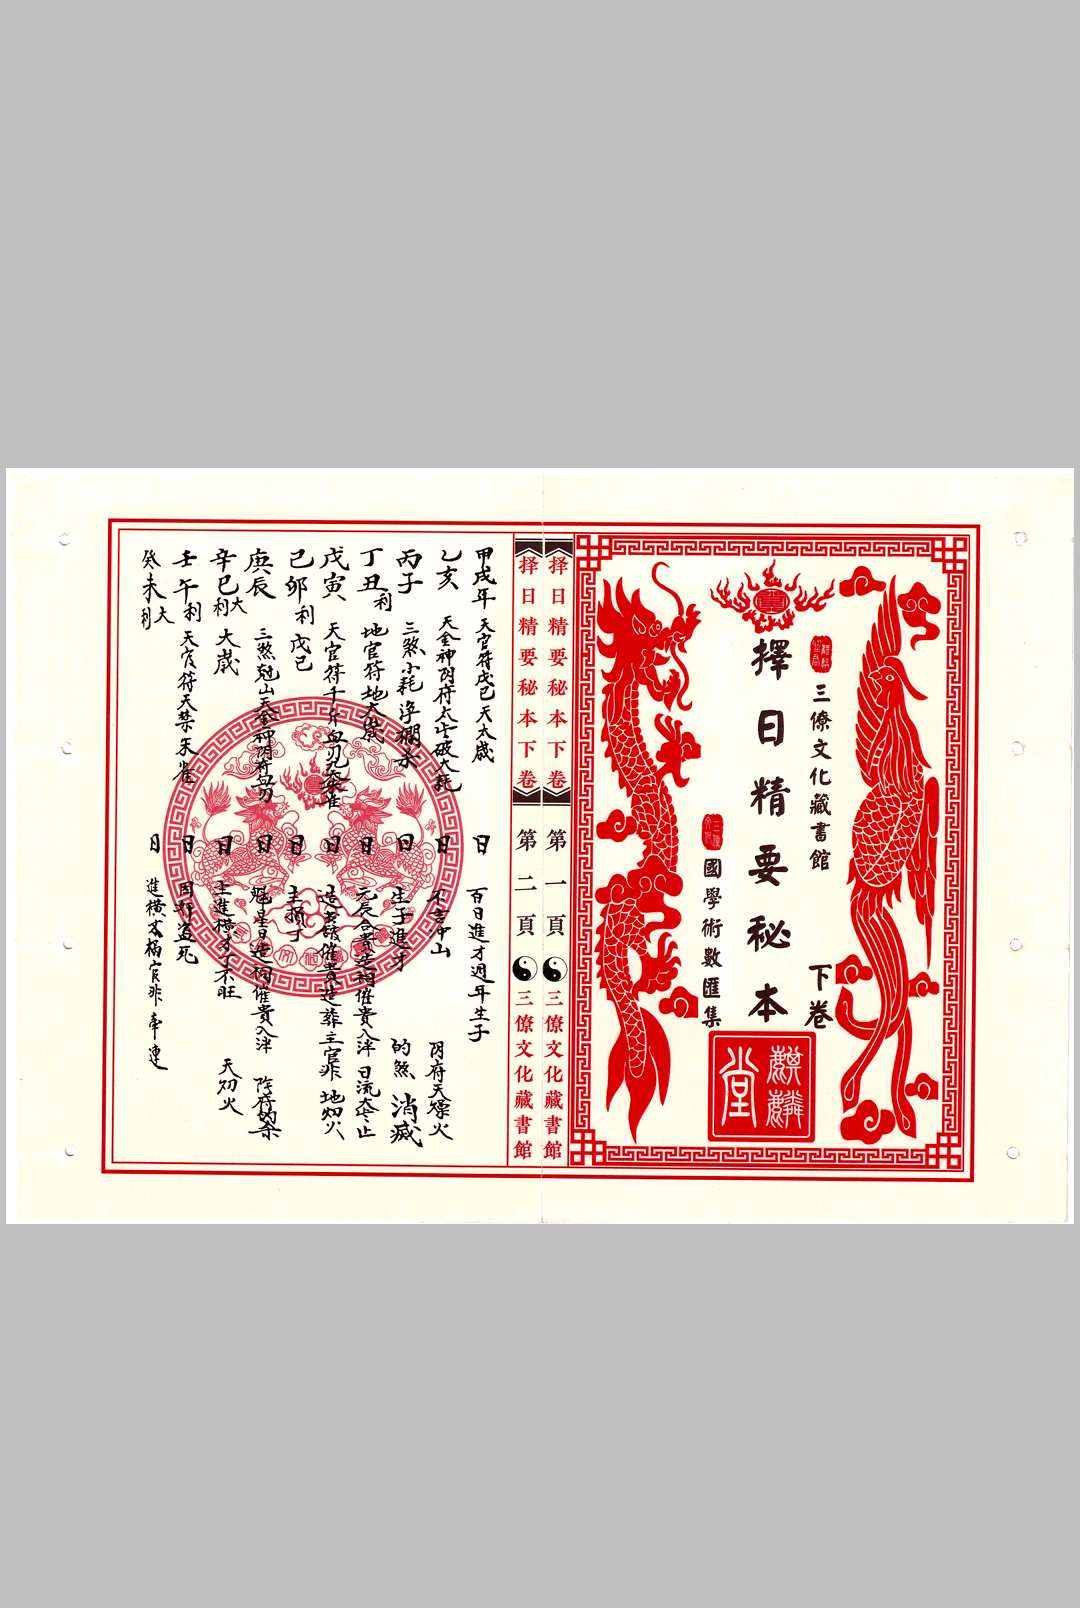 擇日精要秘本
下卷
三僚文化藏書館
國學術數匯集
麒麟堂
择日精要秘本下卷 第一頁 三僚文化藏書館
择日精要秘本下卷 第二頁 三僚文化藏書館
甲戌年 天官符戊己天太歲 日 百日進才週年生子
乙亥 天金神阴府太岁破大耗 日 不吉中山 阴府天燥火
丙子 三煞小耗 日 生子進才 的煞消滅
丁丑利 地官符地太歲 日 元辰合貴造祠催貴入泮日流太冬止
戊寅 天官符千斤血刃 朱雀 日 造 催貴造葬主官非 地 火
己卯利 戊己 日 主損丁
庚辰 三煞 山天金神阴符血刃 日 魁星日造祠催貴入泮 阴府
辛巳大利 大歲 日 主進橫才丁不旺 天 火
壬午利 天官符天禁朱雀 日 因奸盗死
癸未大利 日 進橫才 官非牽連